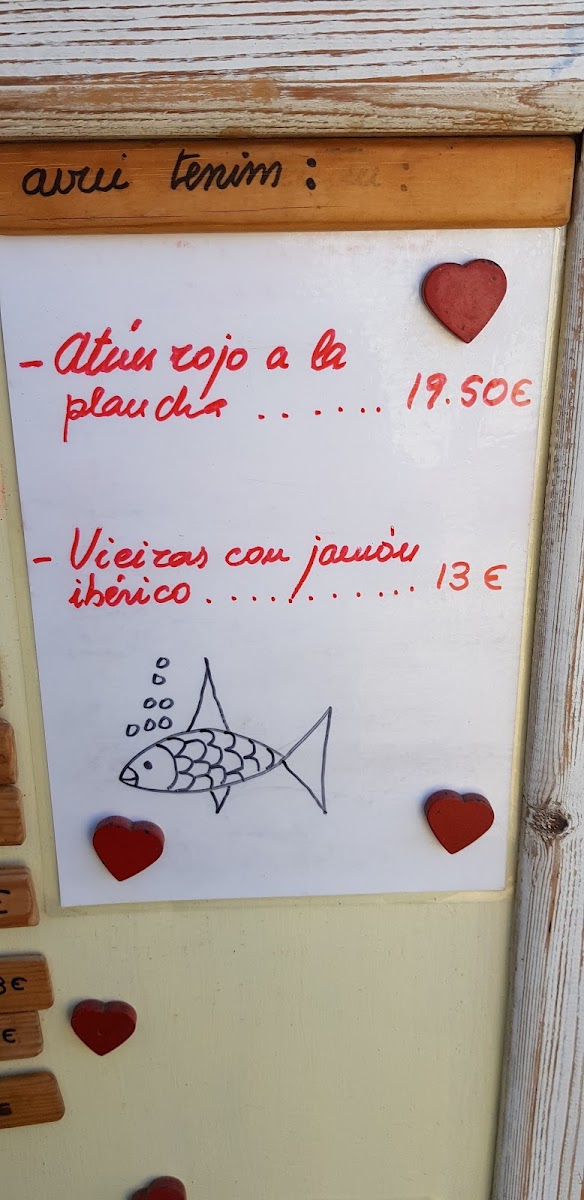 avui tenim :
- Atún rojo a la
plancha ....... 19.50€
- Vieiras con jamón
ibérico ............ 13 €
3€
€